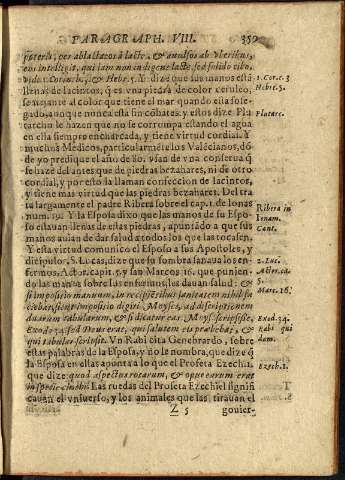 PARAGRAPH. VIII. 359
poteris, per ablactatos à lacte, & auulsos ab vberibus,
eos intelligit, qui iam non indigent lacte, sed solido cibo,
vt do 1. Corint. 3, & Hebr. 5. Y dize que sus manos està
llenas de Iacintos, q̃ es vna piedra de color ceruleo,
semejante al color que tiene el mar quando està sose-
gado, aunque nunca està sin cobates. y estos dize Plu
tarcho le hazen que no se corrompa estando el agua
en ella siempre encharcada, y tiene virtud cordial. Y
muchos Medicos, particularmẽte los Valẽcianos, dõ
de yo predique el año de 80. vsan de vna conserua q̃
se haze del antes que de piedras bezahares, ni de otro
cordial, y por esso la llaman confeccion de Iacintos,
y tiene mas virtud que las piedras bezahares. Del tra
ta largamente el padre Ribera sobre el cap. 1. de Ionas
num. 19. Y la Esposa dixo que las manos de su Espo-
so estauan llenas de estas piedras, apuntado a que sus
manos auian de dar salud a todos los que las tocassen.
Y esta virtud comunico el Esposo a sus Apostoles, y
dicipulos. S. Lucas, dize que su sombra sanaua los en-
fermos. Actor. capit. 5. y san Marcos 16. que ponien-
do las manos sobre los enfermos, les dauan salud: &
si impositio manuum,
duarum tabularum, & si dicatur ear. Moyses scripsisse,
Exodo 34. sed Deus erat, qui salutem eis præbebat, &
qui tabulas scripsit. Vn Rabi cita Genebrardo, sobre
estas palabras de la Esposa, y no le nombra, que dize q̃
la Esposa en ellas aponta a lo que el Profeta Ezechi.
que dize: quod aspectus rotarum, & opus earum erat
Las ruedas del Profeta Ezechiel signifi
cauan el vniuerso, y los animales que las tirauan el
Z 5 gouier-
1. Cor. 3
Hebr. 5.
Plutarc.
Ribera in
Ionam.
Cant.
2. Luc.
Actor. ca.
5.
Marc. 16.
Exod. 34.
Rabi qui
dam.
Ezech. 1.